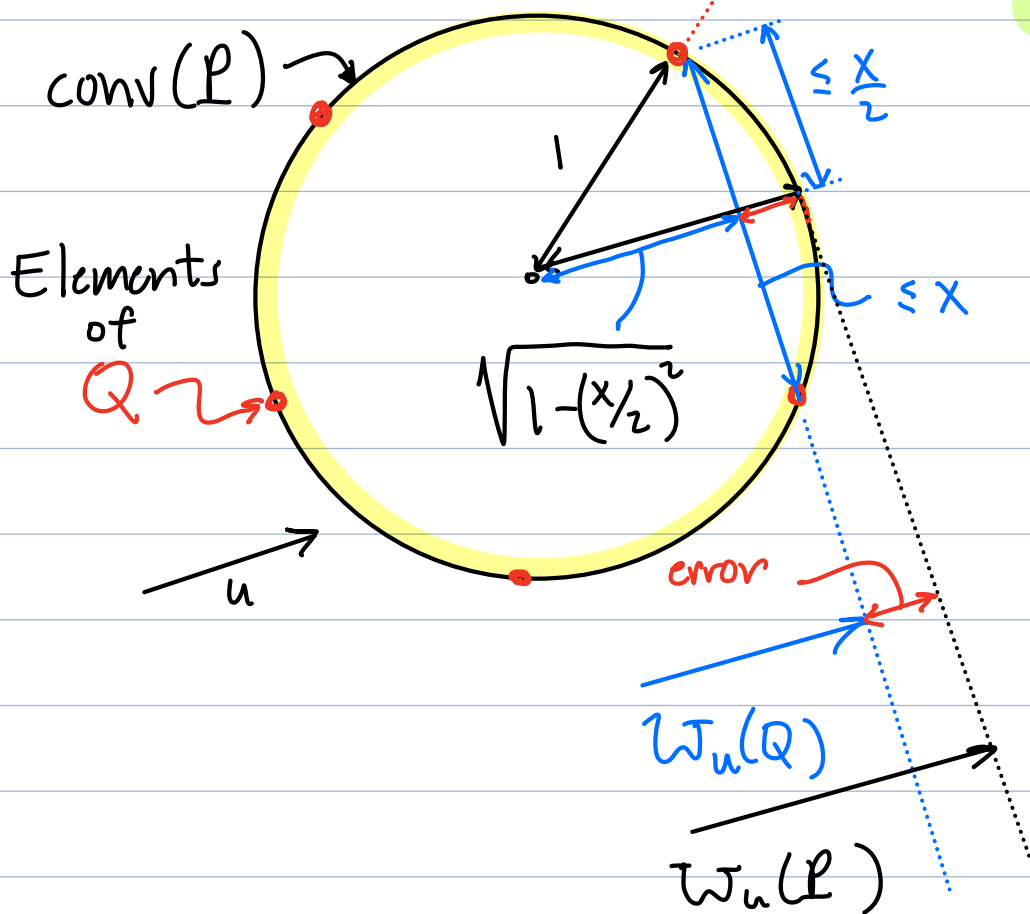 conv(P)
≤ x/2
1
Elements
of
Q
≤ x
√(1-(x/2)²)
u
error
Wᵤ(Q)
Wᵤ(P)